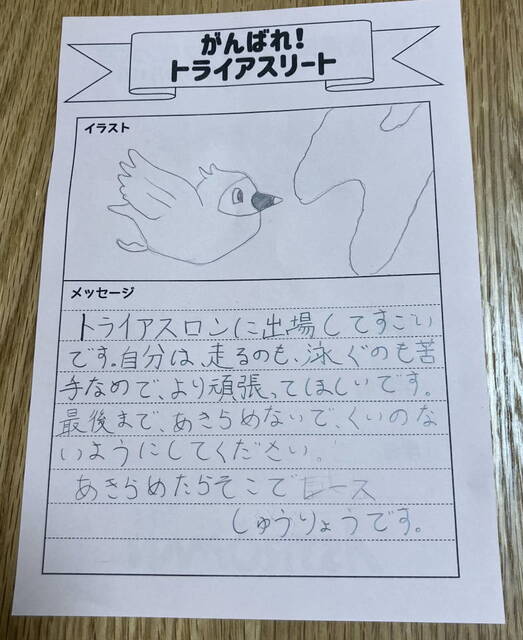 がんばれ！
トライアスリート
イラスト
メッセージ
トライアスロンに出場してすごい
です。自分は、走るのも、泳ぐのも苦
手なので、より頑張ってほしいです。
最後まで、あきらめないで、くいのな
いようにしてください。
あきらめたらそこでレース
しゅうりょうです。